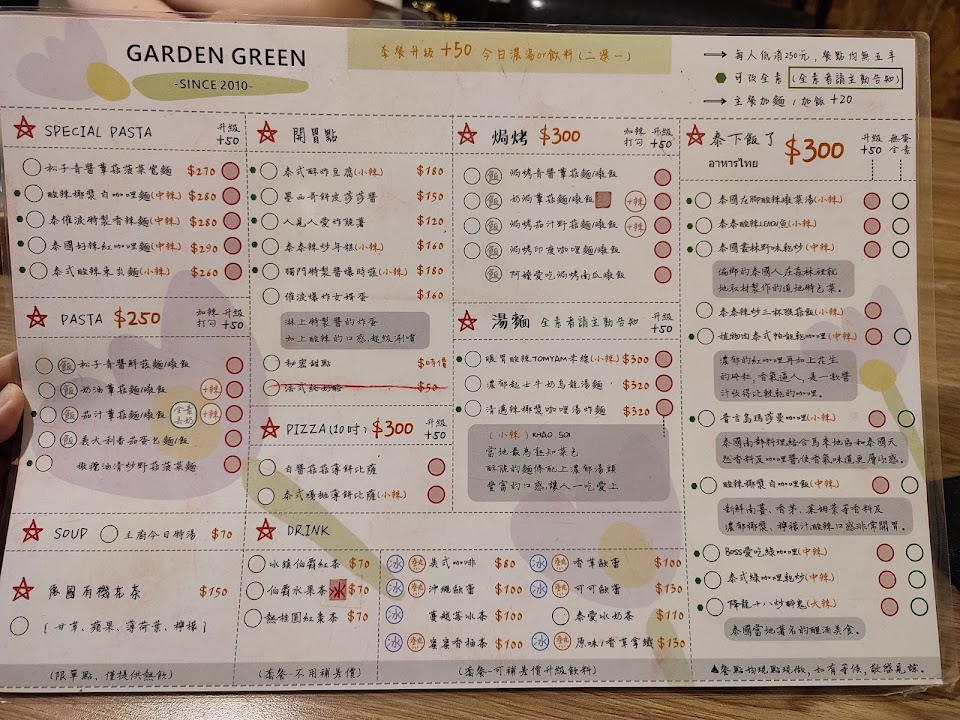 GARDEN GREEN
-SINCE 2010-
套餐升級 +50 今日濃湯or飲料(二選一)
→ 每人低消250元, 餐點均無五辛
可改全素 (全素者請主動告知)
→ 主餐加麵/加飯+20
SPECIAL PASTA 升級 +50
松子青醬蕈菇菠菜寬麵 $270
酸辣椰漿白咖哩麵(中辣) $280
泰催淚特製香辣麵(中辣) $280
泰國好辣紅咖哩麵(中辣) $290
泰式酸辣東炎麵(小辣) $260
PASTA $250 加辣打勾 升級+50
飯 松子青醬鮮菇麵/燉飯
飯 奶油蕈菇麵/燉飯 +辣
飯 茄汁蕈菇麵/燉飯 全素去奶 +辣
飯 義大利香茄蛋包麵/飯
橄欖油清炒野菇菠菜麵
SOUP 主廚今日濃湯 $70
有機花茶 $150
(甘草、蘋果、薄荷葉、檸檬)
(限單點, 僅提供熱飲)
開胃點
泰式酥炸豆腐(小辣) $180
墨西哥鮮蔬莎莎醬 $150
人見人愛炸脆薯 $120
泰泰辣炒年糕(小辣) $160
獨門特製醬爆時蔬(小辣) $180
催淚爆炸女婿蛋 $160
淋上特製醬的炸蛋
加上酸辣的口感,超級涮嘴
秘密甜點 $時價
法式純奶酪 $50
PIZZA(10吋) $300 升級+50
白醬菇菇薄餅比薩
泰式嘎拋薄餅比薩(小辣)
焗烤 $300 加辣打勾 升級+50
飯 焗烤青醬蕈菇麵/燉飯
飯 奶焗蕈菇麵/燉飯 +辣
飯 焗烤茄汁野菇麵/燉飯 +辣
飯 焗烤印度咖哩麵/燉飯
飯 阿嬤愛吃焗烤南瓜燉飯
湯麵 全素者請主動告知 升級+50
暖胃酸辣TOMYAM米線(小辣) $300
濃郁起士牛奶烏龍湯麵 $320
清邁辣椰漿咖哩湯炸麵 $320
(小辣) KHAO SOI
當地最為熟知菜色
酥脆的麵條配上濃郁湯頭
豐富的口感讓人一吃愛上
DRINK
冰鎮伯爵紅茶 $70
伯爵水果茶 冰 $70
熱桂圓紅棗茶 $70
(套餐-不用補差價)
冰 熱 美式咖啡 $80
冰 熱 沖繩歐蕾 $100
冰 寶島冰茶 $110
冰 熱 蜜蜜香柚茶 $100
冰 熱 香草歐蕾 $100
冰 熱 可可歐蕾 $130
泰愛冰奶茶 $110
冰 熱 原味/香草拿鐵 $130
(套餐-可補差價升級飲料)
泰下飯了 $300 升級+50 無蛋全素
อาหารไทย
泰國在腳酸辣燉菜湯(小辣)
泰泰酸辣LEMON魚(小辣)
泰國叢林野味乾炒(中辣)
偏鄉的泰國人在森林裡就
地取材製作的道地特色菜。
泰泰辣炒三杯猴菇飯(小辣)
植物肉泰式帕能乾咖哩(中辣)
濃郁的紅咖哩再加上花生
的碎粒,香氣逼人,是一款醬
汁收得比較乾的咖哩。
普吉島瑪莎曼咖哩(小辣)
泰國南部料理結合馬來地區和泰國天
然香料及咖哩醬使香氣味道更層次感。
酸辣椰漿白咖哩(中辣)
新鮮南薑、香茅、萊姆葉等香料及
濃郁椰漿、檸檬汁,酸辣口感非常開胃。
BOSS愛吃綠咖哩(中辣)
泰式綠咖哩乾炒(中辣)
降龍十八炒醉鬼(大辣)
泰國當地著名的醒酒美食。
▲餐點均現點現做, 如有等候, 敬感見諒。